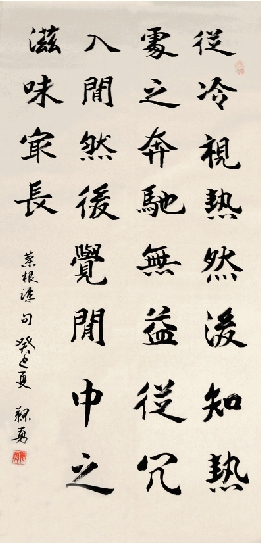 從冷視熱然後知熱
處之奔馳無益從冗
入閒然後覺閒中之
滋味㝡長
菜根譚句 癸巳夏 勇